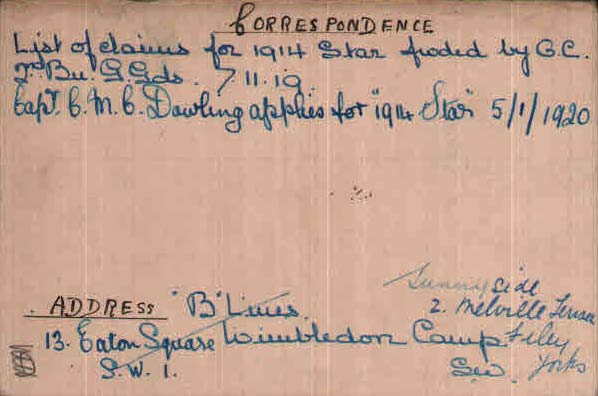 CORRESPONDENCE
List of claims for 1914 Star fwded by O.C.
Bn. G. Gds. 7.11.19.
Capt. C. M. C. Dowling applies for "1914 Star" 5/1/1920
ADDRESS
"B" Lines.
Wimbledon Camp
S.W.
13. Eaton Square
S.W. 1.
Sunnyside
2. Melville Terrace
Filey
Yorks